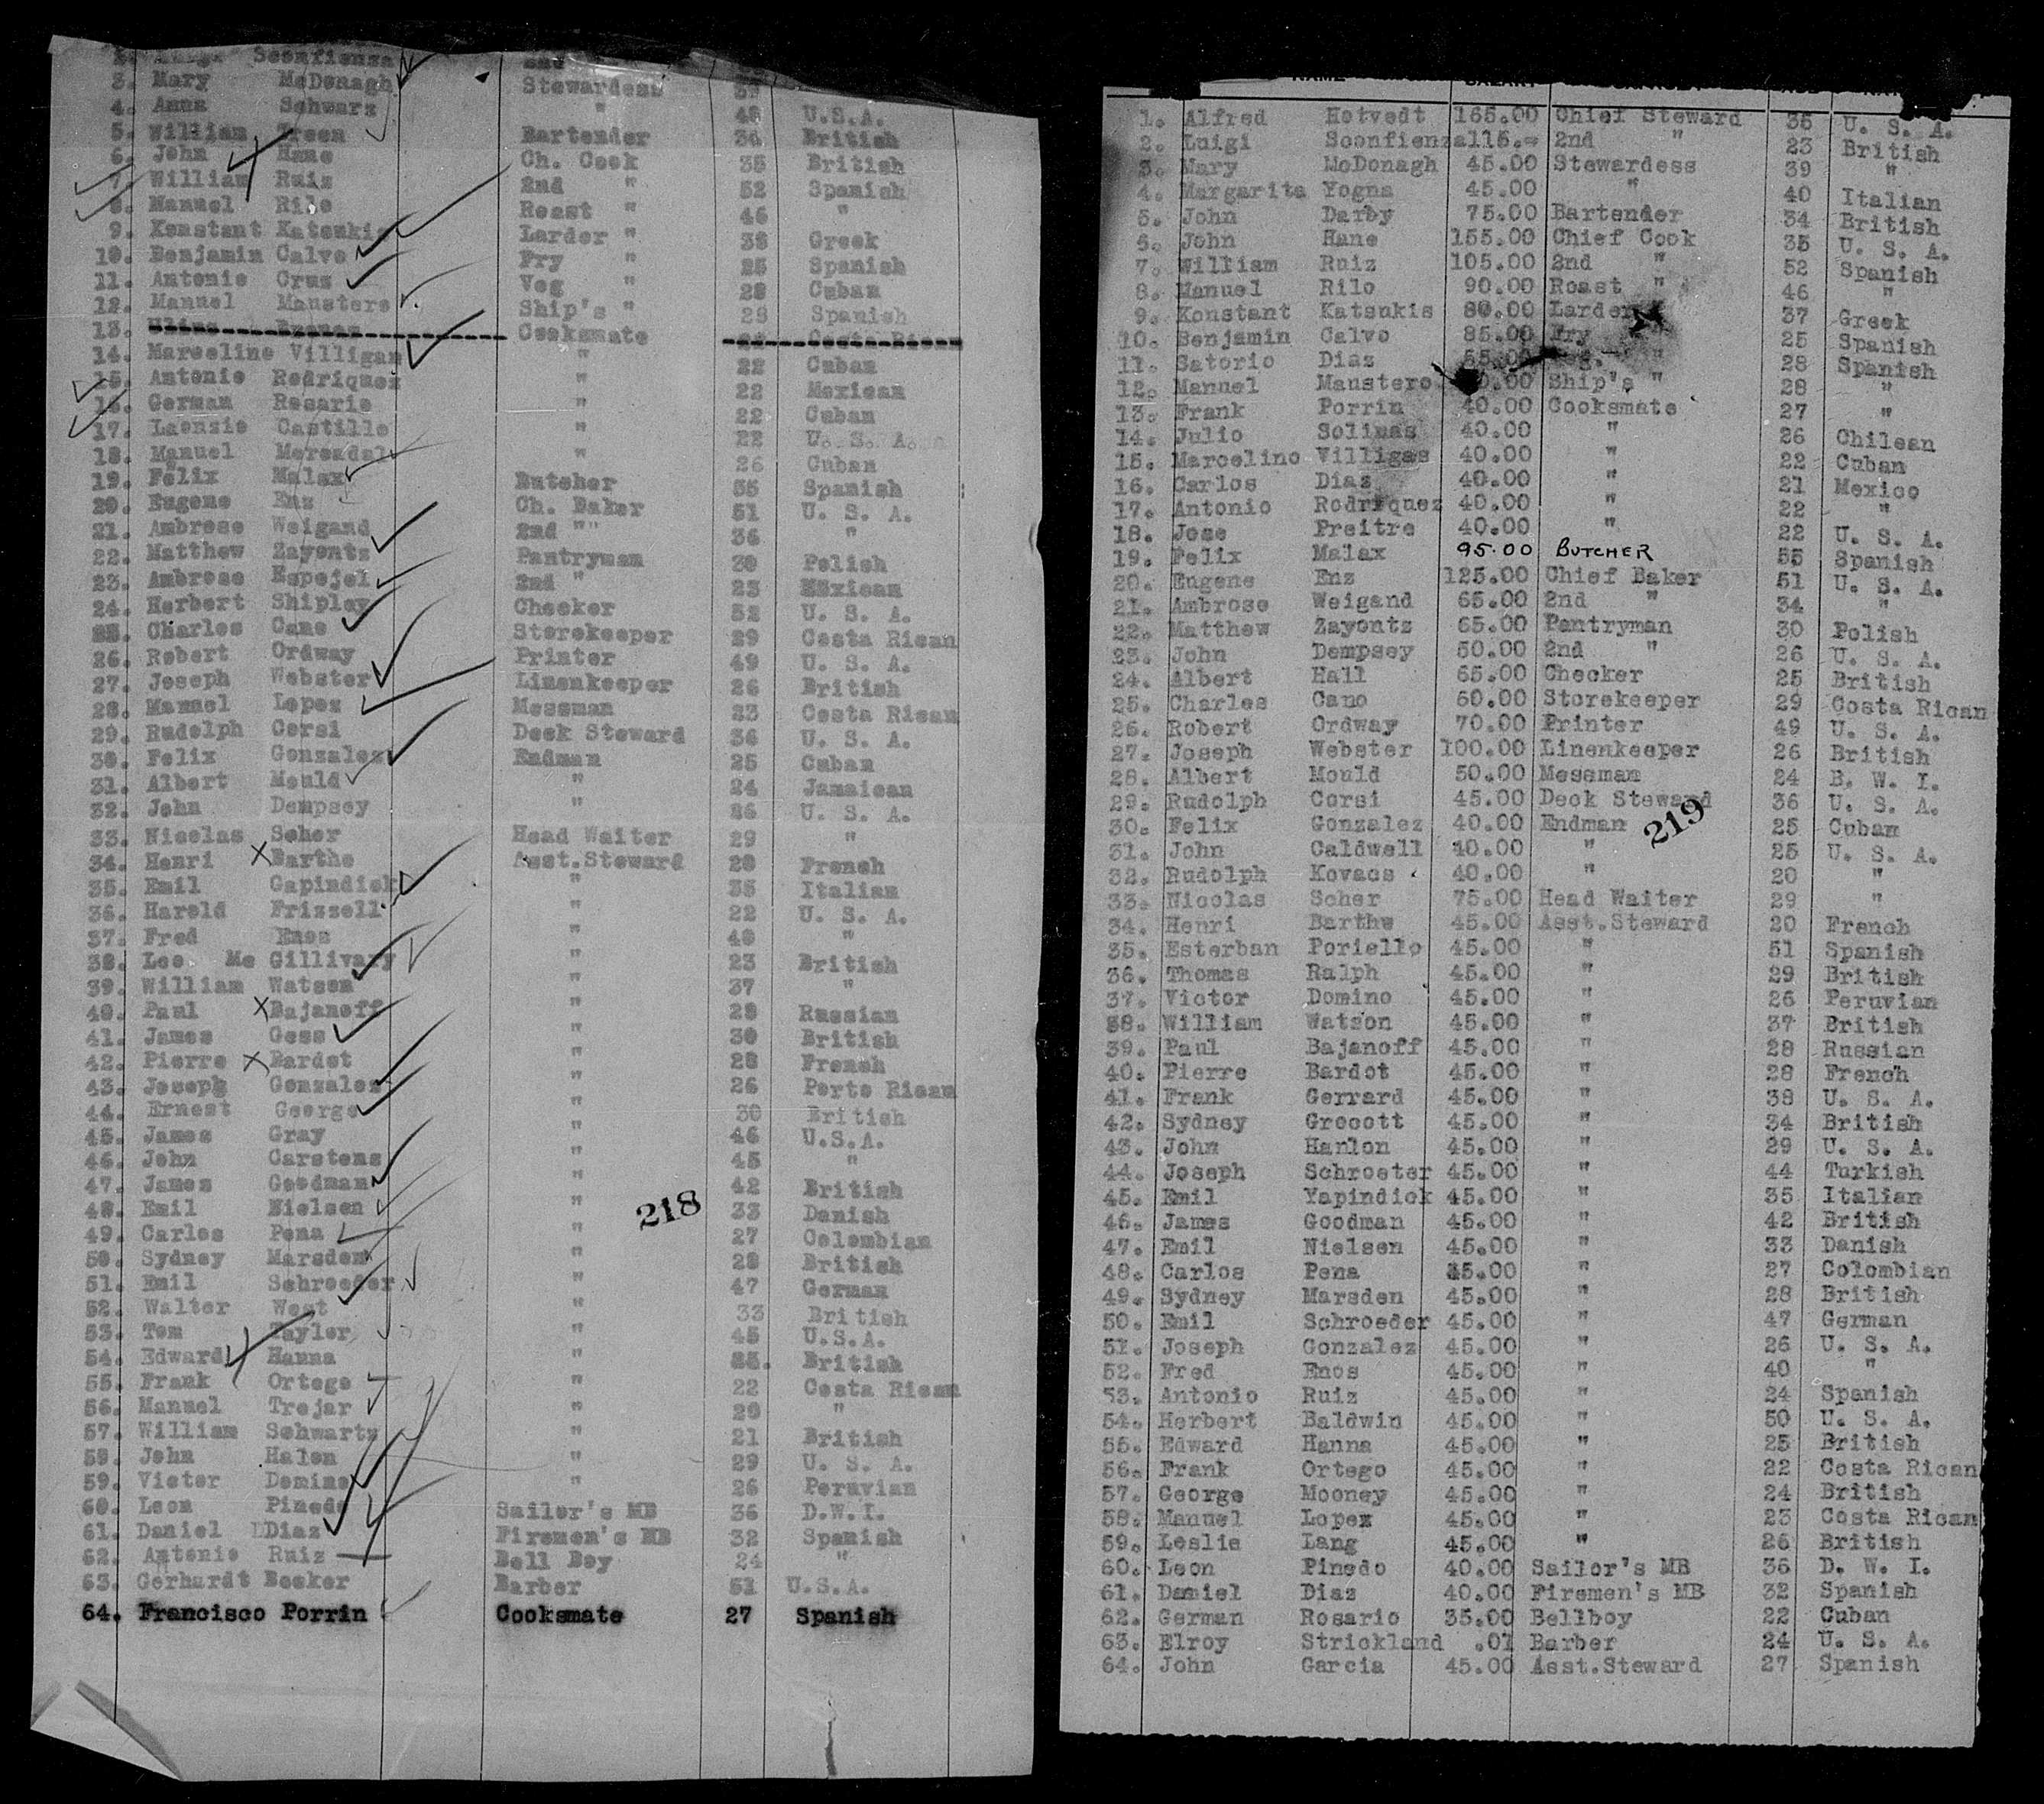 Sconfienza 2nd
3. Mary McDonagh Stewardess 39
4. Anna Schwarz " 48 U.S.A.
5. William Treen Bartender 34 British
6. John Hane Ch. Cook 35 British
7. William Ruiz 2nd " 52 Spanish
8. Manuel Rilo Roast " 46 "
9. Konstant Katsukis Larder " 38 Greek
10. Benjamin Calvo Fry " 25 Spanish
11. Antonio Cruz Veg " 28 Cuban
12. Manuel Maustero Ship's " 28 Spanish
13. Cooksmate Costa Rican
14. Marcelino Villigas " 22 Cuban
15. Antonio Rodriquez " 22 Mexican
16. German Rosario " 22 Cuban
17. Laenzio Castillo " 22 U. S. A.
18. Manuel Mercadal " 26 Cuban
19. Felix Malax Butcher 55 Spanish
20. Eugene Enz Ch. Baker 51 U. S. A.
21. Ambrose Weigand 2nd "" 34 "
22. Matthew Zayontz Pantryman 30 Polish
23. Ambrose Espejel 2nd " 23 Mexican
24. Herbert Shipley Checker 52 U. S. A.
25. Charles Cano Storekeeper 29 Costa Rican
26. Robert Ordway Printer 49 U. S. A.
27. Joseph Webster Linenkeeper 26 British
28. Manuel Lopez Messman 23 Costa Rican
29. Rudolph Corsi Deck Steward 36 U. S. A.
30. Felix Gonzalez Endman 25 Cuban
31. Albert Mould " 24 Jamaican
32. John Dempsey " 26 U. S. A.
33. Nicolas Scher Head Waiter 29 "
34. Henri X Barthe Asst.Steward 20 French
35. Emil Gapindick " 35 Italian
36. Harold Frizzell " 22 U. S. A.
37. Fred Enos " 40 "
38. Leo Mc Gillivary " 23 British
39. William Watson " 37 "
40. Paul X Bajanoff " 28 Russian
41. James Goss " 30 British
42. Pierre X Bardot " 28 French
43. Joseph Gonzalez " 26 Porto Rican
44. Ernest George " 30 British
45. James Gray " 46 U.S.A.
46. John Carstens " 45 "
47. James Goodman " 42 British
48. Emil Nielsen " 33 Danish
218
49. Carlos Pena " 27 Colombian
50. Sydney Marsden " 28 British
51. Emil Schroeder " 47 German
52. Walter West " 33 British
53. Tom Tayler " 45 U.S.A.
54. Edward Hanna " 25. British
55. Frank Ortego " 22 Costa Rican
56. Manuel Trejar " 20 "
57. William Schwartz " 21 British
58. John Halon " 29 U. S. A.
59. Victor Domino " 26 Peruvian
60. Leon Pinedo Sailor's MB 36 D.W.I.
61. Daniel Diaz Firemen's MB 32 Spanish
62. Antonio Ruiz Bell Boy 24 "
63. Gerhardt Becker Barber 51 U.S.A.
64. Francisco Porrin Cooksmate 27 Spanish
NAME SALARY
1. Alfred Hotvedt 165.00 Chief Steward 36 U. S. A.
2. Luigi Sconfienza 115.- 2nd " 23 British
3. Mary McDonagh 45.00 Stewardess 39 "
4. Margarita Yogna 45.00 " 40 Italian
5. John Darby 75.00 Bartender 34 British
6. John Hane 155.00 Chief Cook 35 U. S. A.
7. William Ruiz 105.00 2nd " 52 Spanish
8. Manuel Rilo 90.00 Roast " 46 "
9. Konstant Katsukis 80.00 Larder 37 Greek
10. Benjamin Calvo 85.00 Fry 25 Spanish
11. Satorio Diaz 65.00 " 28 Spanish
12. Manuel Maustero Ship's " 28 "
13. Frank Porrin 40.00 Cooksmate 27 "
14. Julio Solimas 40.00 " 26 Chilean
15. Marcelino Villigas 40.00 " 22 Cuban
16. Carlos Diaz 40.00 " 21 Mexico
17. Antonio Rodriquez 40.00 " 22 "
18. Jose Freitre 40.00 " 22 U. S. A.
19. Felix Malax 95.00 BUTCHER 55 Spanish
20. Eugene Enz 125.00 Chief Baker 51 U. S. A.
21. Ambrose Weigand 65.00 2nd " 34 "
22. Matthew Zayontz 65.00 Pantryman 30 Polish
23. John Dempsey 50.00 2nd " 26 U. S. A.
24. Albert Hall 65.00 Checker 25 British
25. Charles Cano 60.00 Storekeeper 29 Costa Rican
26. Robert Ordway 70.00 Printer 49 U. S. A.
27. Joseph Webster 100.00 Linenkeeper 26 British
28. Albert Mould 50.00 Messman 24 B. W. I.
29. Rudolph Corsi 45.00 Deck Steward 36 U. S. A.
30. Felix Gonzalez 40.00 Endman 25 Cuban
219
31. John Caldwell 40.00 " 25 U. S. A.
32. Rudolph Kovacs 40.00 " 20 "
33. Nicolas Scher 75.00 Head Waiter 29 "
34. Henri Barthe 45.00 Asst.Steward 20 French
35. Esterban Poriello 45.00 " 51 Spanish
36. Thomas Ralph 45.00 " 29 British
37. Victor Domino 45.00 " 26 Peruvian
38. William Watson 45.00 " 37 British
39. Paul Bajanoff 45.00 " 28 Russian
40. Pierre Bardot 45.00 " 28 French
41. Frank Gerrard 45.00 " 38 U. S. A.
42. Sydney Grocott 45.00 " 34 British
43. John Hanlon 45.00 " 29 U. S. A.
44. Joseph Schroeter 45.00 " 44 Turkish
45. Emil Yapindick 45.00 " 35 Italian
46. James Goodman 45.00 " 42 British
47. Emil Nielsen 45.00 " 33 Danish
48. Carlos Pena 45.00 " 27 Colombian
49. Sydney Marsden 45.00 " 28 British
50. Emil Schroeder 45.00 " 47 German
51. Joseph Gonzalez 45.00 " 26 U. S. A.
52. Fred Enos 45.00 " 40 "
53. Antonio Ruiz 45.00 " 24 Spanish
54. Herbert Baldwin 45.00 " 50 U. S. A.
55. Edward Hanna 45.00 " 25 British
56. Frank Ortego 45.00 " 22 Costa Rican
57. George Mooney 45.00 " 24 British
58. Manuel Lopez 45.00 " 23 Costa Rican
59. Leslie Lang 45.00 " 26 British
60. Leon Pinedo 40.00 Sailor's MB 36 D. W. I.
61. Daniel Diaz 40.00 Firemen's MB 32 Spanish
62. German Rosario 35.00 Bellboy 22 Cuban
63. Elroy Strickland .01 Barber 24 U. S. A.
64. John Garcia 45.00 Asst.Steward 27 Spanish